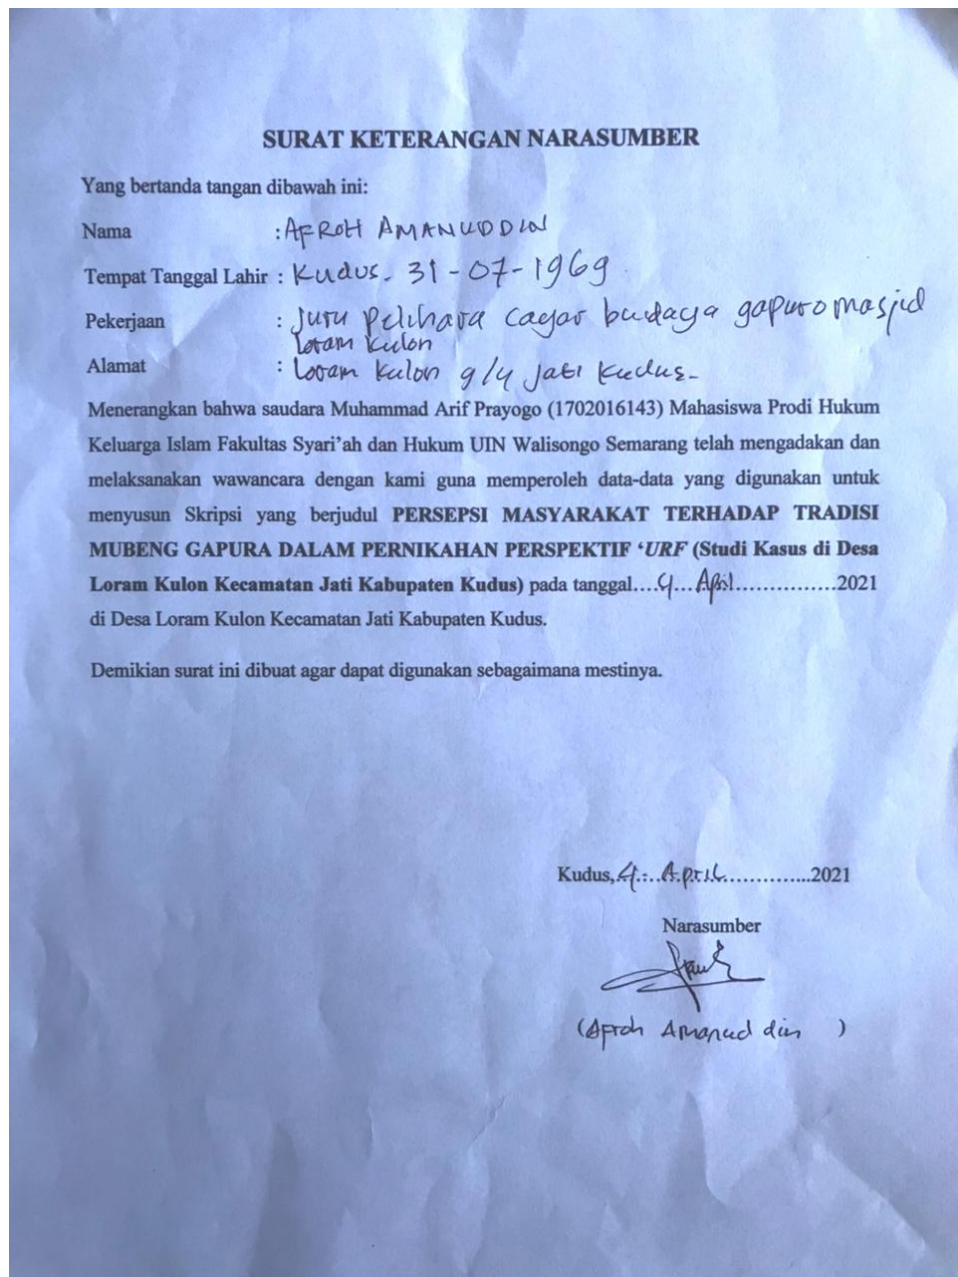 SURAT KETERANGAN NARASUMBER
Yang bertanda tangan dibawah ini:
Nama : AFROH AMANUDDIN
Tempat Tanggal Lahir : Kudus - 31-07-1969
Pekerjaan : Juru Pelihara cagar budaya gapuro masjid
Loram Kulon
Alamat : Loram Kulon 9/4 Jati Kudus-
Menerangkan bahwa saudara Muhammad Arif Prayogo (1702016143) Mahasiswa Prodi Hukum
Keluarga Islam Fakultas Syari'ah dan Hukum UIN Walisongo Semarang telah mengadakan dan
melaksanakan wawancara dengan kami guna memperoleh data-data yang digunakan untuk
menyusun Skripsi yang berjudul PERSEPSI MASYARAKAT TERHADAP TRADISI
MUBENG GAPURA DALAM PERNIKAHAN PERSPEKTIF 'URF (Studi Kasus di Desa
Loram Kulon Kecamatan Jati Kabupaten Kudus) pada tanggal....4...April...............2021
di Desa Loram Kulon Kecamatan Jati Kabupaten Kudus.
Demikian surat ini dibuat agar dapat digunakan sebagaimana mestinya.
Kudus, 4...April...............2021
Narasumber
(Afroh Amanuddin )